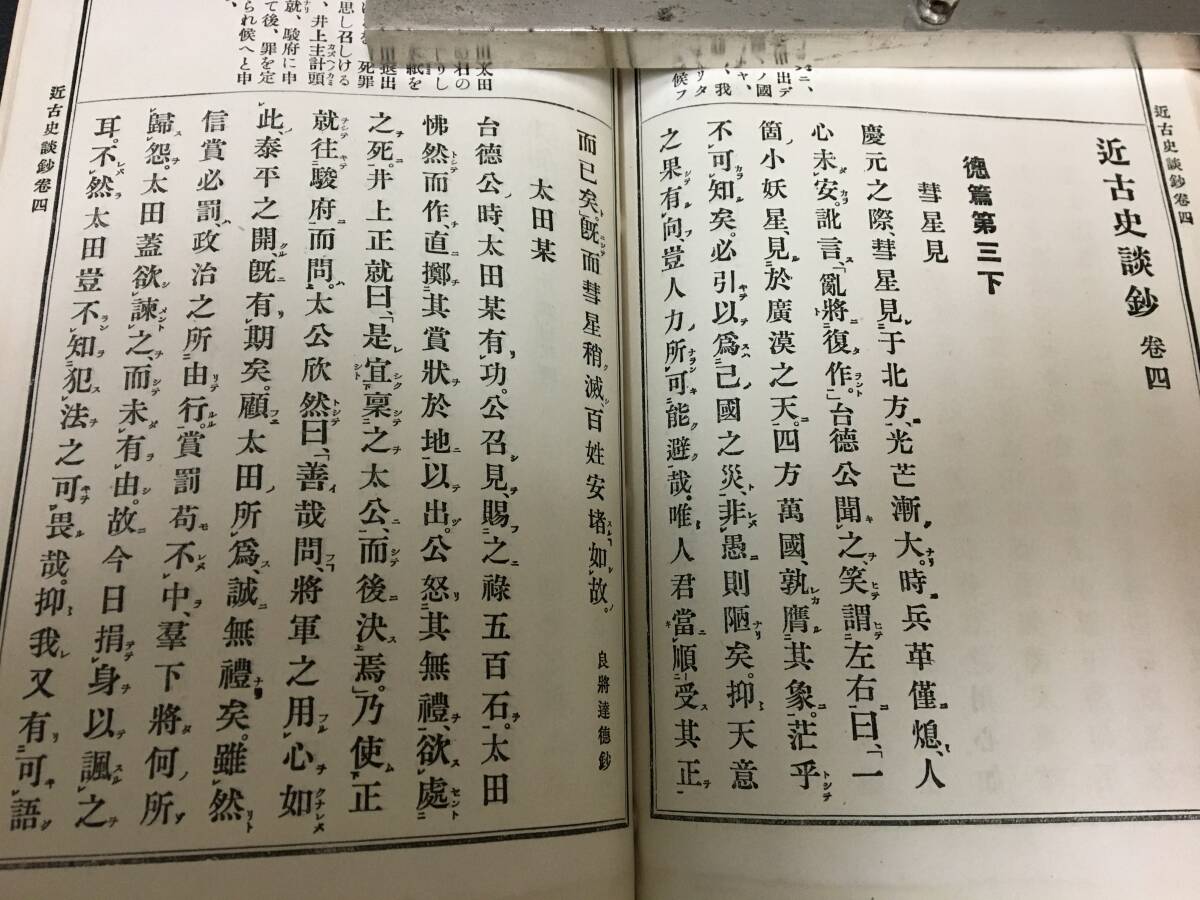 近古史談鈔卷四
近古史談鈔 卷四
德篇第三下
彗星見
慶元之際、彗星見于北方、光芒漸大。時兵革僅熄、人
心未安。訛言、「亂將復作。」台德公聞之、笑謂左右曰、「一
箇小妖星、見於廣漠之天。四方萬國、孰膺其象。茫乎
不可知矣。必引以爲己國之災、非愚則陋矣。抑天意
之果有向、豈人力所可能避哉。唯人君當順受其正
而已矣。」既而彗星稍滅、百姓安堵如故。 良將達德鈔
太田某
台德公時、太田某有功。公召見、賜之祿五百石。太田
怫然而作、直擲其賞狀於地以出。公怒其無禮、欲處
之死。井上正就曰、「是宜稟之太公、而後決焉。」乃使正
就往駿府而問。太公欣然曰、「善哉問、將軍之用心如
此、泰平之開、既有期矣。顧太田所爲、誠無禮矣。雖然
信賞必罰、政治之所由行。賞罰苟不中、羣下將何所
歸怨。太田蓋欲諫之、而未有由。故今日捐身以諷之
耳。不然太田豈不知犯法之可畏哉。抑我又有可語
思し召しける
、井上主計頭
就、駿府に申
て後、罪を定
られ候へと申
近古史談鈔卷四